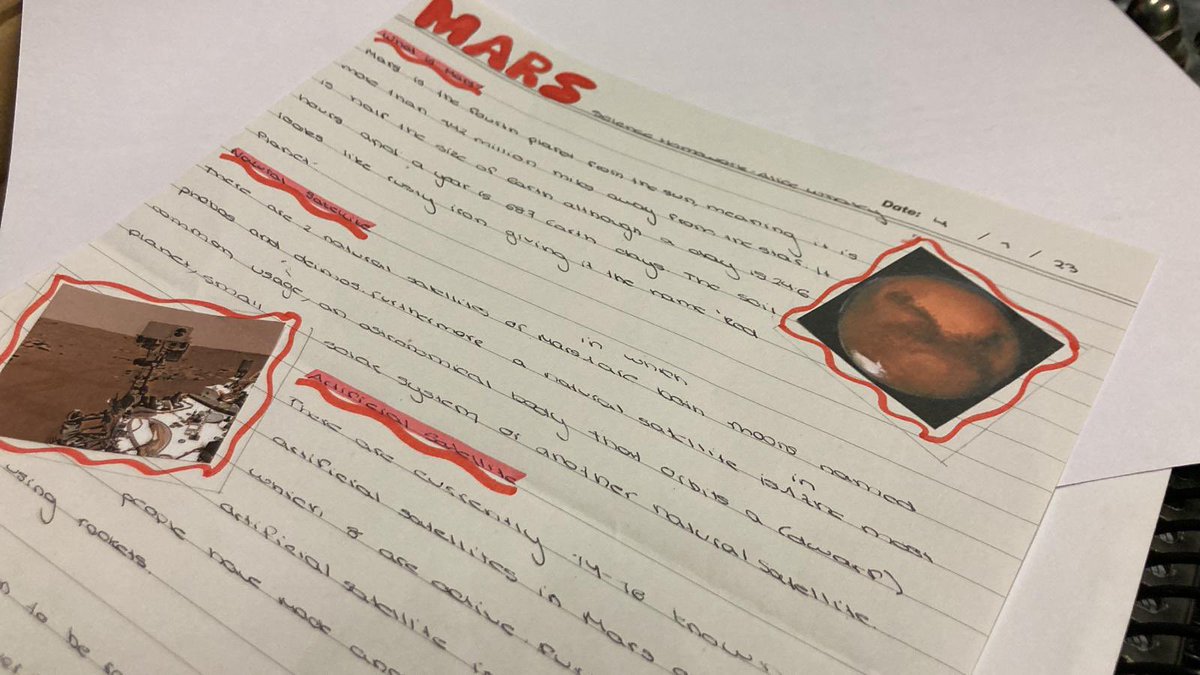 MARS
Science Homework: Alice
Date: 4 / 9 / 23
What is Mars
Mars is the fourth planet from the sun, meaning it is
more than 142 million miles away from the star. It
is half the size of earth although a day is 24.6
hours and a year is 687 earth days. The soil
looks like rusty iron giving it the name 'Red
Planet.'
Natural Satellite
There are 2 natural satellites of Mars, are both moons named
phobos and deimos. furthermore a natural satellite is, in the most
common usage, an astronomical body that orbits a (dwarf)
planet, small solar system or another natural satellite.
Artificial Satellite
There are currently 14-18 known
artificial satellites in Mars
which 8 are active.
artificial satellite is
people have made and
using rockets.
to be